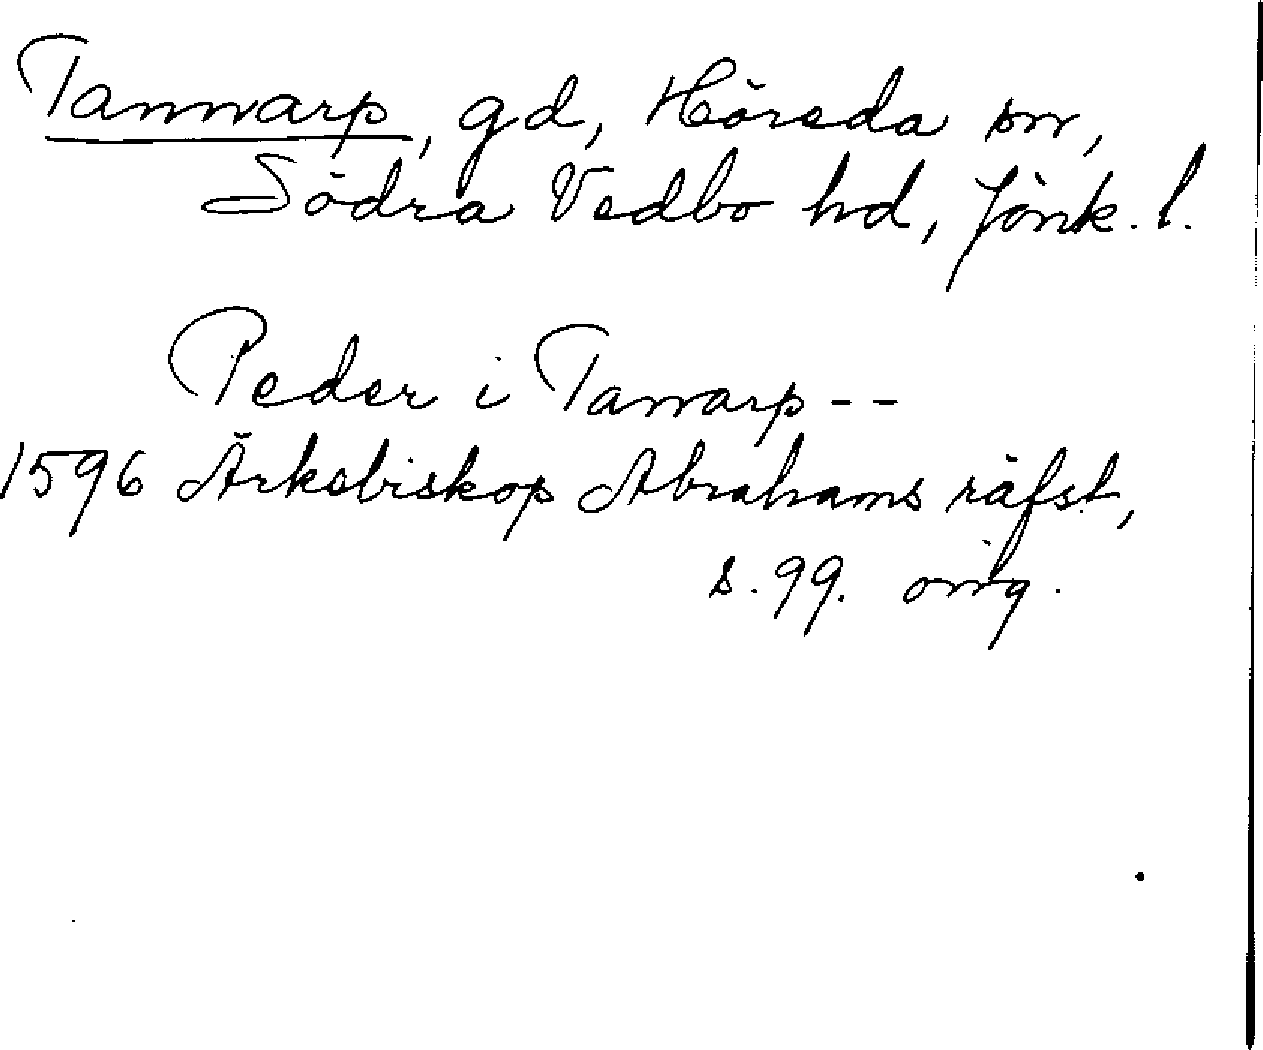 Tannarp, gd, Höreda sn,
Södra Vedbo hd, Jönk. l.
Peder i Tanarp --
1596 Ärkebiskop Abrahams räfst,
s. 99. orig.